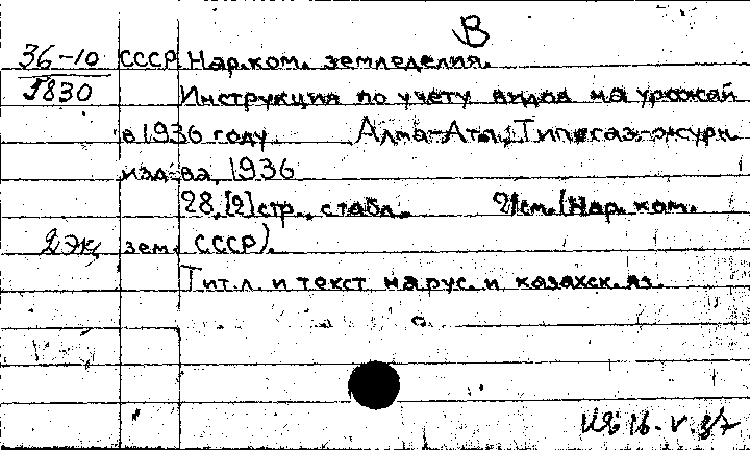 В
36-10 СССР Нар.ком. земледелия.
5830 Инструкция по учету видов на урожай
в 1936 году Алма-Ата, Тип. газ.-журн.
изд-ва, 1936
28, [2] стр., с табл. 21см. (Нар. ком.
2 экз зем. СССР).
Тит.л. и текст на рус. и казахск. яз.